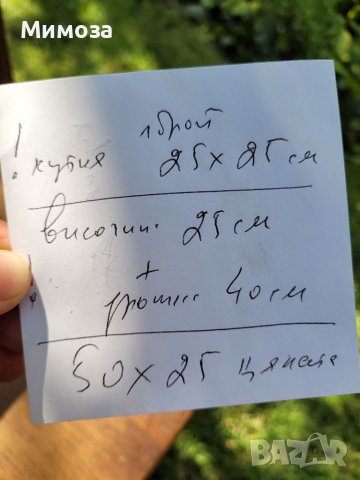 Мимоза
1 брой
! кутия 25 x 25 см
височин. 25 см
+
! 40 см
50 x 25 цялата
BAZAR
bg